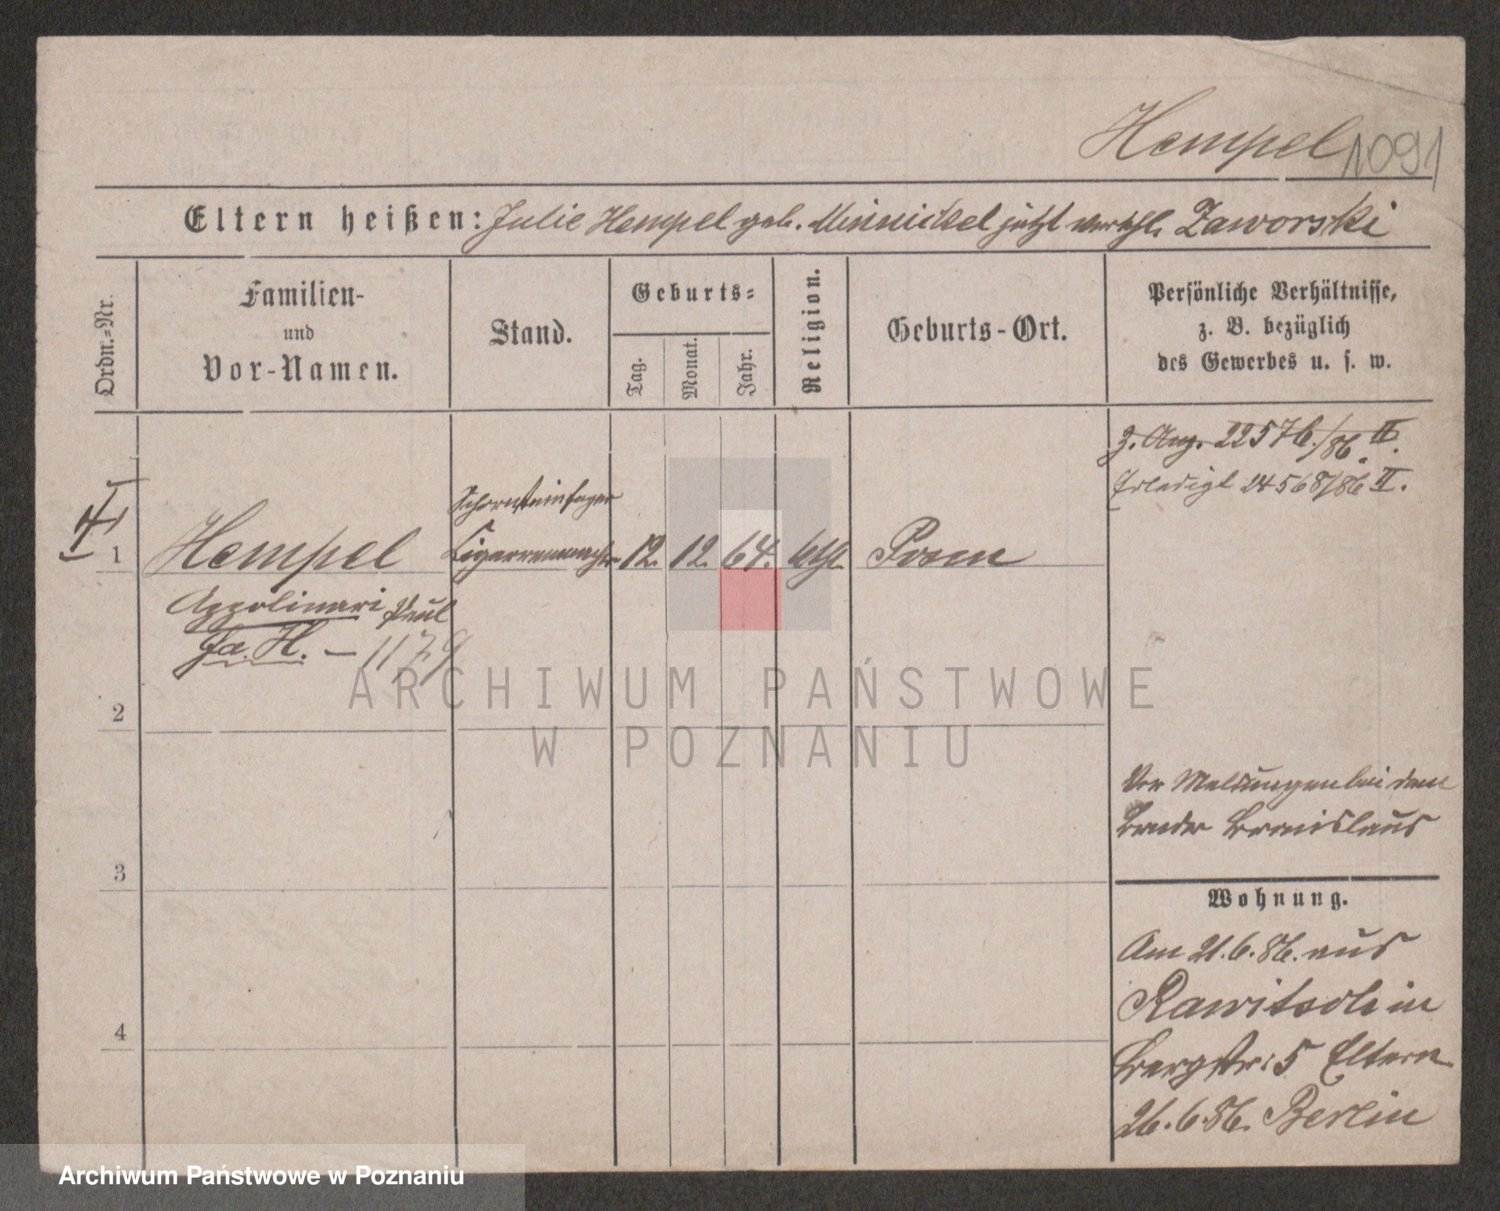 Hempel 1091
Eltern heißen: Julie Hempel geb. Minnickel jetzt verehl. Zaworski
Ordn.-Nr.
Familien-
und
Vor-Namen.
Stand.
Geburts-
Tag.
Monat.
Jahr.
Religion.
Geburts-Ort.
Persönliche Verhältnisse,
z. B. bezüglich
des Gewerbes u. s. w.
z. Ang. 22576/86. II.
Erledigt 24568/86 II.
Schornsteinfeger
1 Hempel Cigarrenmacher 12. 12. 64. kth. Posen
Appolinari Paul
fa. H. - 1179
2
ARCHIWUM PAŃSTWOWE
W POZNANIU
Vor Meldungen bei dem
Bruder Bronislaus
3
Wohnung.
Am 21.6.86. aus
Rawitsch in
4
Bergstr: 5 Eltern
26.6.86. Berlin
Archiwum Państwowe w Poznaniu